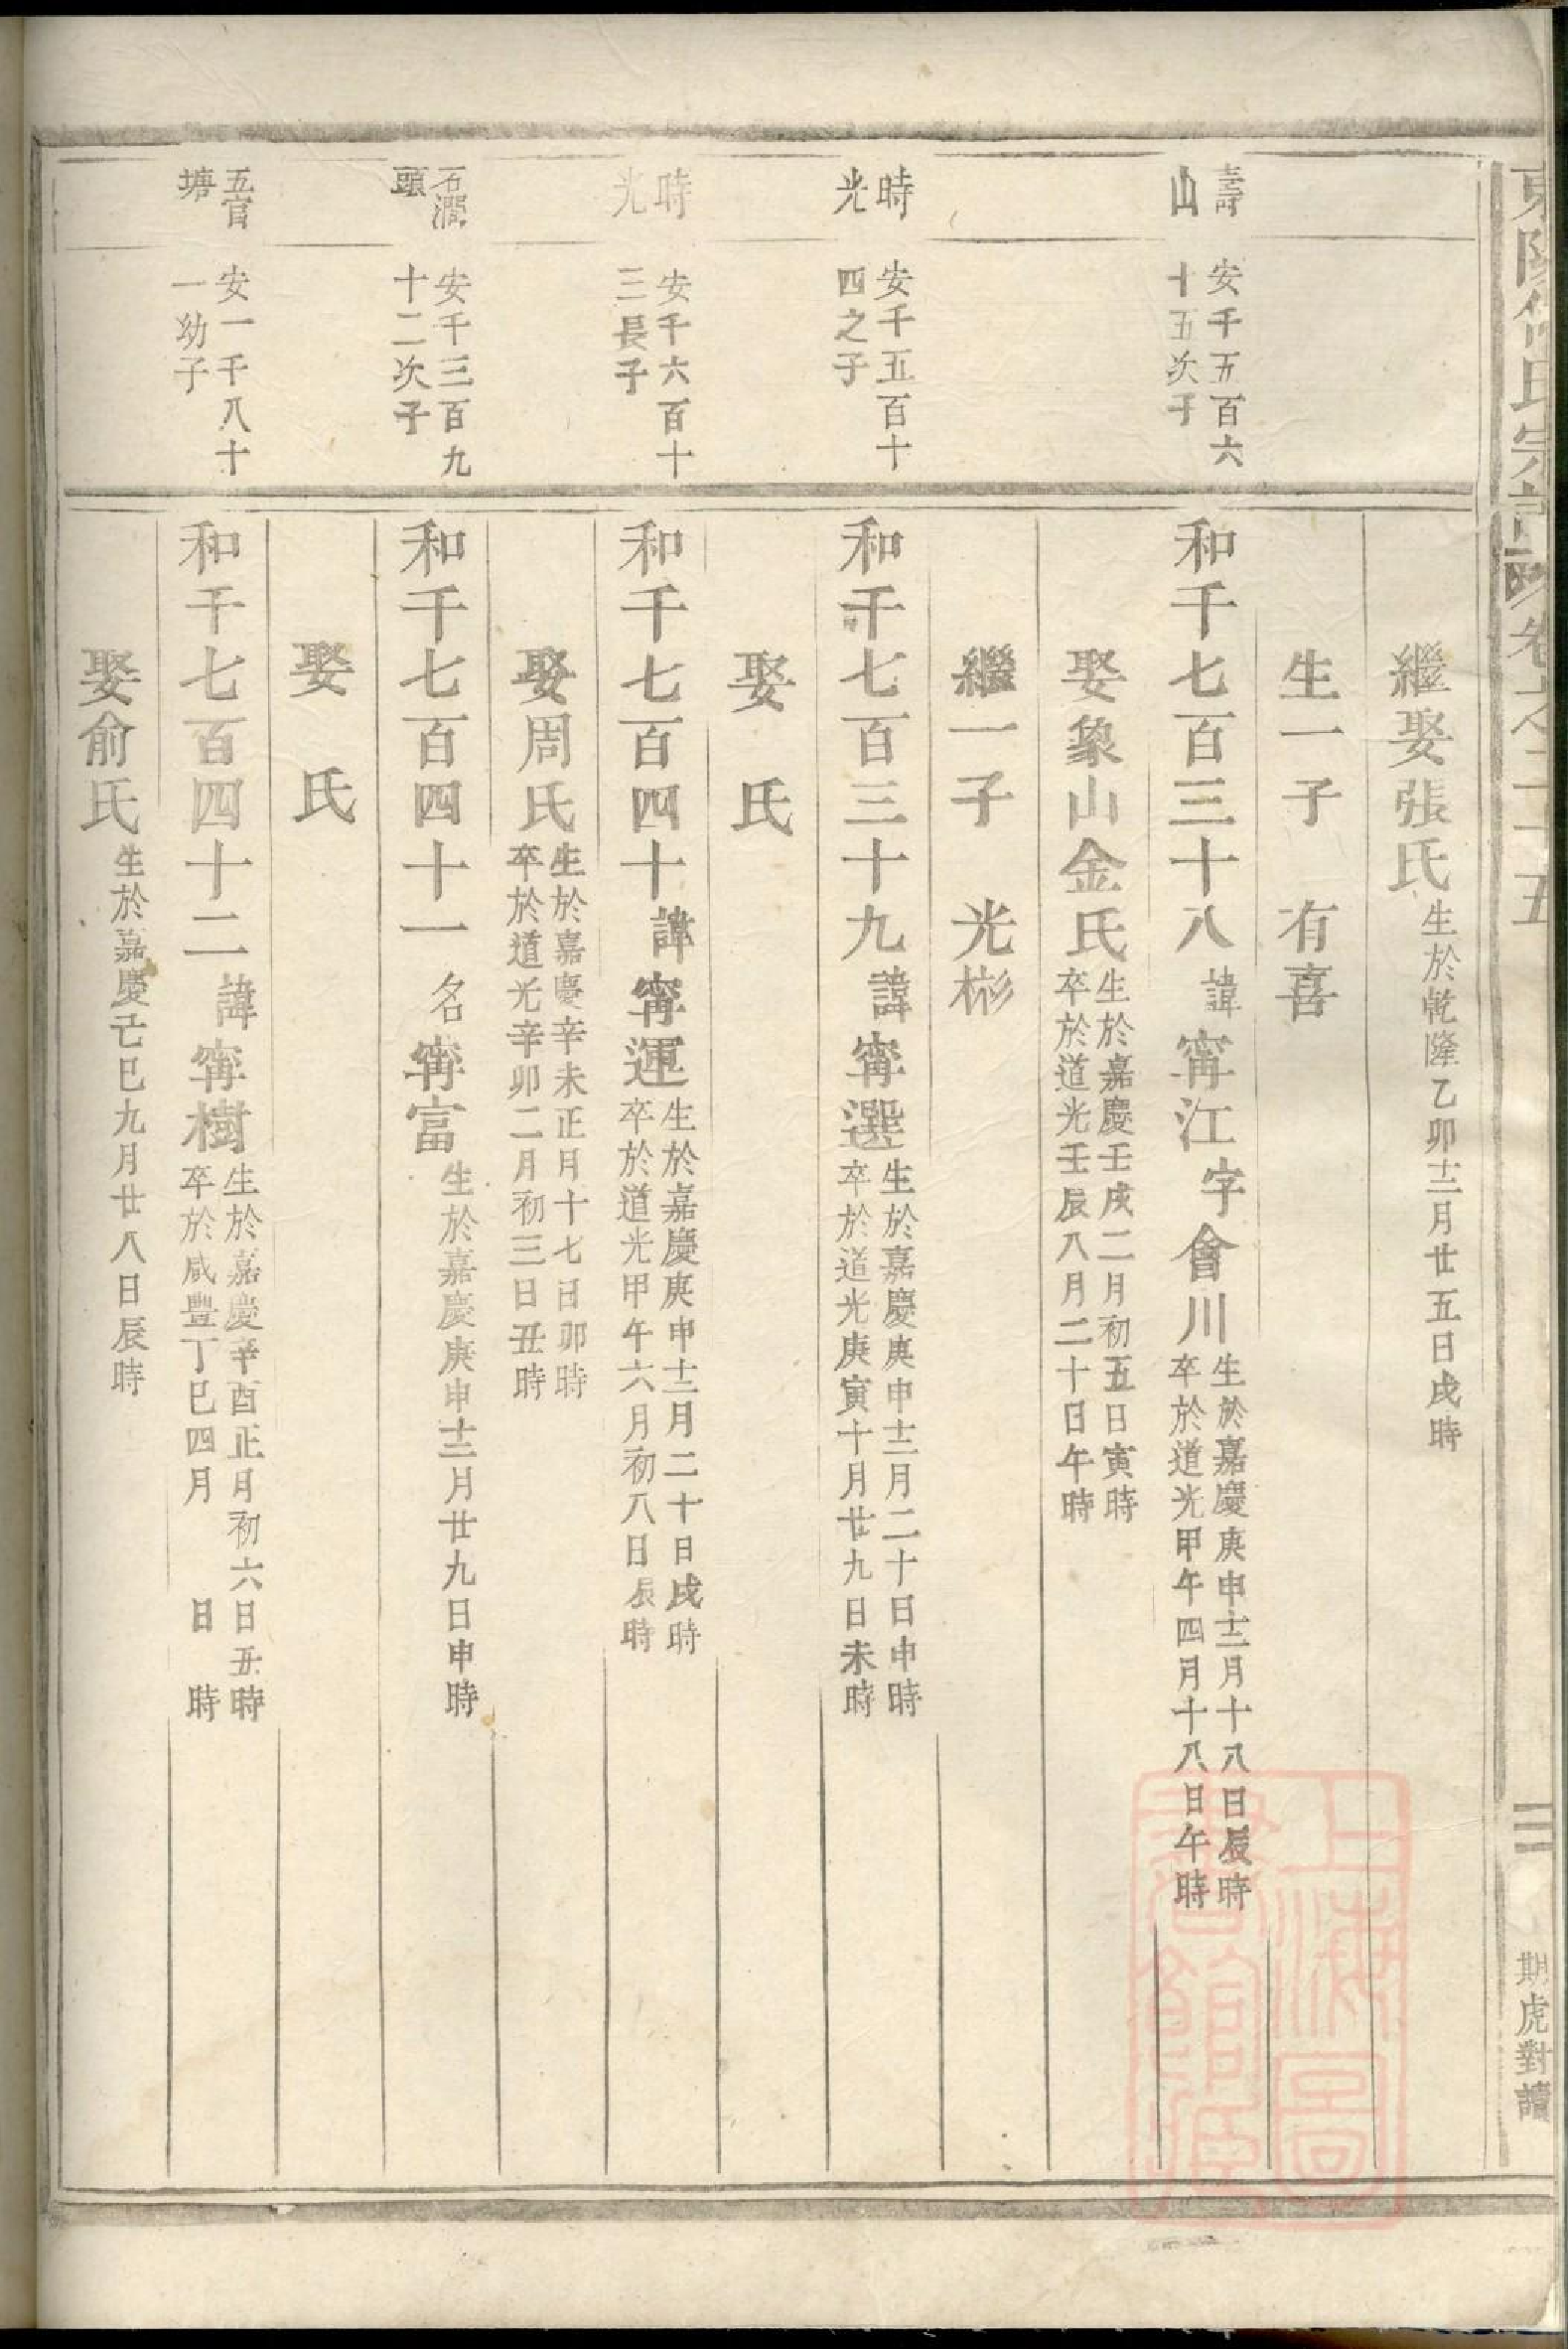 繼娶張氏生於乾隆乙卯十二月廿五日戌時
生一子　有喜
壽山
安千五百六十五次子
和千七百三十八諱甯江字會川生於嘉慶庚申十二月十八日辰時
卒於道光甲午四月十八日午時
娶象山金氏生於嘉慶壬戌二月初五日寅時
卒於道光壬辰八月二十日午時
繼一子　光彬
時光
安千五百十四之子
和千七百三十九諱甯選生於嘉慶庚申十二月二十日申時
卒於道光庚寅十月廿九日未時
娶　氏
時光
安千六百十三長子
和千七百四十諱甯運生於嘉慶庚申十二月二十日戌時
卒於道光甲午六月初八日辰時
娶周氏生於嘉慶辛未正月十七日卯時
卒於道光辛卯二月初三日丑時
石澗頭
安千三百九十二次子
和千七百四十一名甯富生於嘉慶庚申十二月廿九日申時
娶　氏
五官塘
安一千八十一幼子
和千七百四十二諱甯樹生於嘉慶辛酉正月初六日丑時
卒於咸豐丁巳四月　日　時
娶俞氏生於嘉慶己巳九月廿八日辰時
卷之二十五
三
期虎對讀
上海圖書館藏